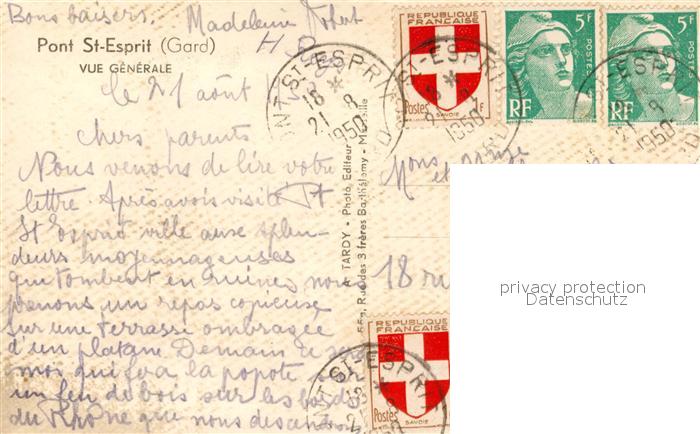 Bons baisers. Madeleine
Pont St-Esprit (Gard)
VUE GÉNÉRALE
le 21 août
Chers parents
Nous venons de lire votre
lettre. Après avoir visité Pt
St Esprit ville aux splen-
deurs moyennageuses
qui tombent en ruines nous
prenons un repas copieuse
sur une terrasse ombragée
d'un platane Demain ce sera
moi qui fera la popote sur
un feu de bois sur les bords
du Rhône que nous descendons
A. TARDY - Photo, Editeur
Rue des 3 frères Barthélemy - Marseille
REPUBLIQUE FRANÇAISE
Postes 1F
SAVOIE
5F
POSTES
RF
5F
POSTES
RF
PONT-ST-ESPRIT
18
21 8
1950
ST-ESPRIT
1950
ST-ESPRIT
21 8
1950
Mons
et
18 ru
privacy protection
Datenschutz
REPUBLIQUE FRANÇAISE
Postes
SAVOIE
PONT-ST-ESPRIT